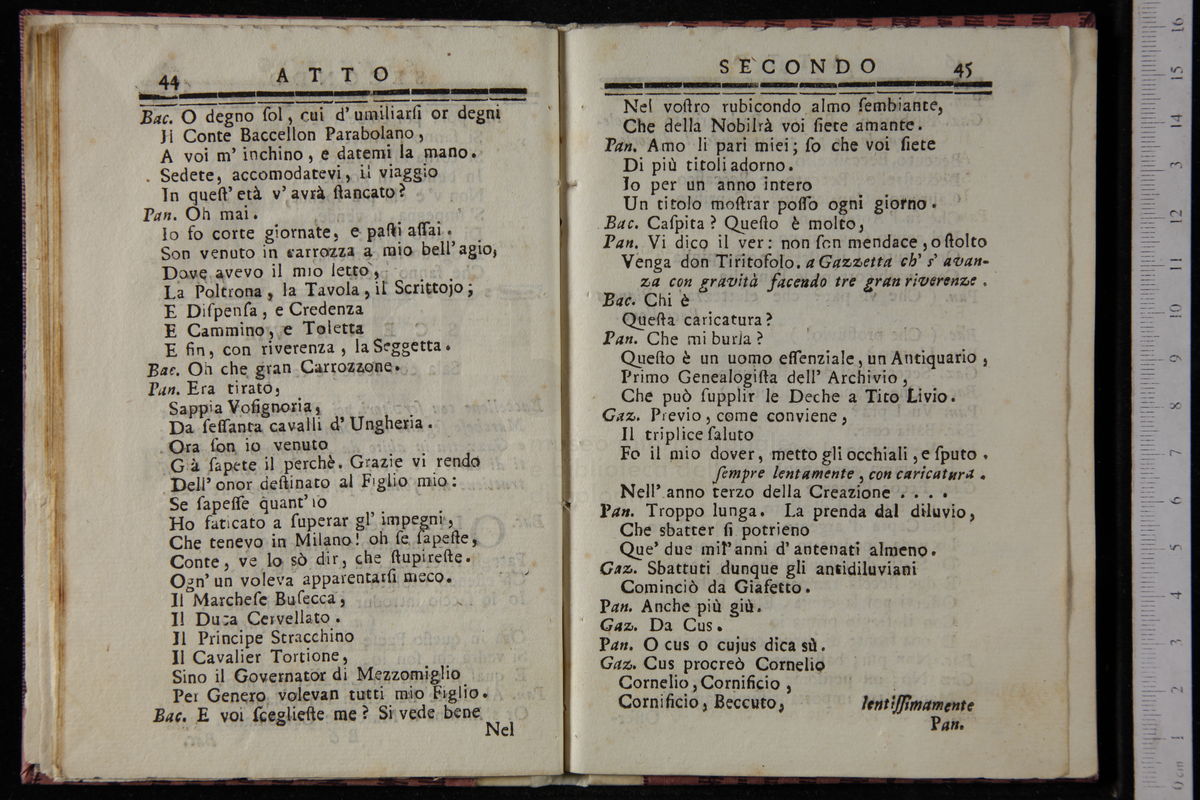 44 ATTO
Bac. O degno ſol, cui d' umiliarſi or degni
Il Conte Baccellon Parabolano,
A voi m' inchino, e datemi la mano.
Sedete, accomodatevi, il viaggio
In queſt' età v' avrà ſtancato?
Pan. Oh mai.
Io fo corte giornate, e paſti aſſai.
Son venuto in carrozza a mio bell' agio,
Dove avevo il mio letto,
La Poltrona, la Tavola, il Scrittojo;
E Diſpenſa, e Credenza
E Cammino, e Toletta
E fin, con riverenza, la Seggetta.
Bac. Oh che gran Carrozzone.
Pan. Era tirato,
Sappia Voſignoria,
Da ſeſſanta cavalli d' Ungheria.
Ora ſon io venuto
Già ſapete il perchè. Grazie vi rendo
Dell' onor deſtinato al Figlio mio:
Se ſapeſſe quant' io
Ho faticato a ſuperar gl' impegni,
Che tenevo in Milano! oh ſe ſapeſte,
Conte, ve lo sò dir, che ſtupireſte.
Ogn' un voleva apparentarſi meco.
Il Marcheſe Buſecca,
Il Duca Cervellato.
Il Principe Stracchino
Il Cavalier Tortione,
Sino il Governator di Mezzomiglio
Per Genero volevan tutti mio Figlio.
Bac. E voi ſcegliefte me? Si vede bene
Nel
SECONDO 45
Nel voſtro rubicondo almo ſembiante,
Che della Nobilrà voi ſiete amante.
Pan. Amo li pari miei; ſo che voi ſiete
Di più titoli adorno.
Io per un anno intero
Un titolo moſtrar poſſo ogni giorno.
Bac. Caſpita? Queſto è molto,
Pan. Vi dico il ver: non ſon mendace, o ſtolto
Venga don Tiritofolo. a Gazzetta ch' s' avan-
za con gravità facendo tre gran riverenze.
Bac. Chi è
Queſta caricatura?
Pan. Che mi burla?
Queſto è un uomo eſſenziale, un Antiquario,
Primo Genealogiſta dell' Archivio,
Che può ſupplir le Deche a Tito Livio.
Gaz. Previo, come conviene,
Il triplice ſaluto
Fo il mio dover, metto gli occhiali, e ſputo.
ſempre lentamente, con caricatura.
Nell' anno terzo della Creazione ....
Pan. Troppo lunga. La prenda dal diluvio,
Che sbatter ſi potrieno
Que' due mil' anni d' antenati almeno.
Gaz. Sbattuti dunque gli antidiluviani
Cominciò da Giafetto.
Pan. Anche più giù.
Gaz. Da Cus.
Pan. O cus o cujus dica sù.
Gaz. Cus procreò Cornelio
Cornelio, Cornificio,
Cornificio, Beccuto, lentiſſimamente
Pan.